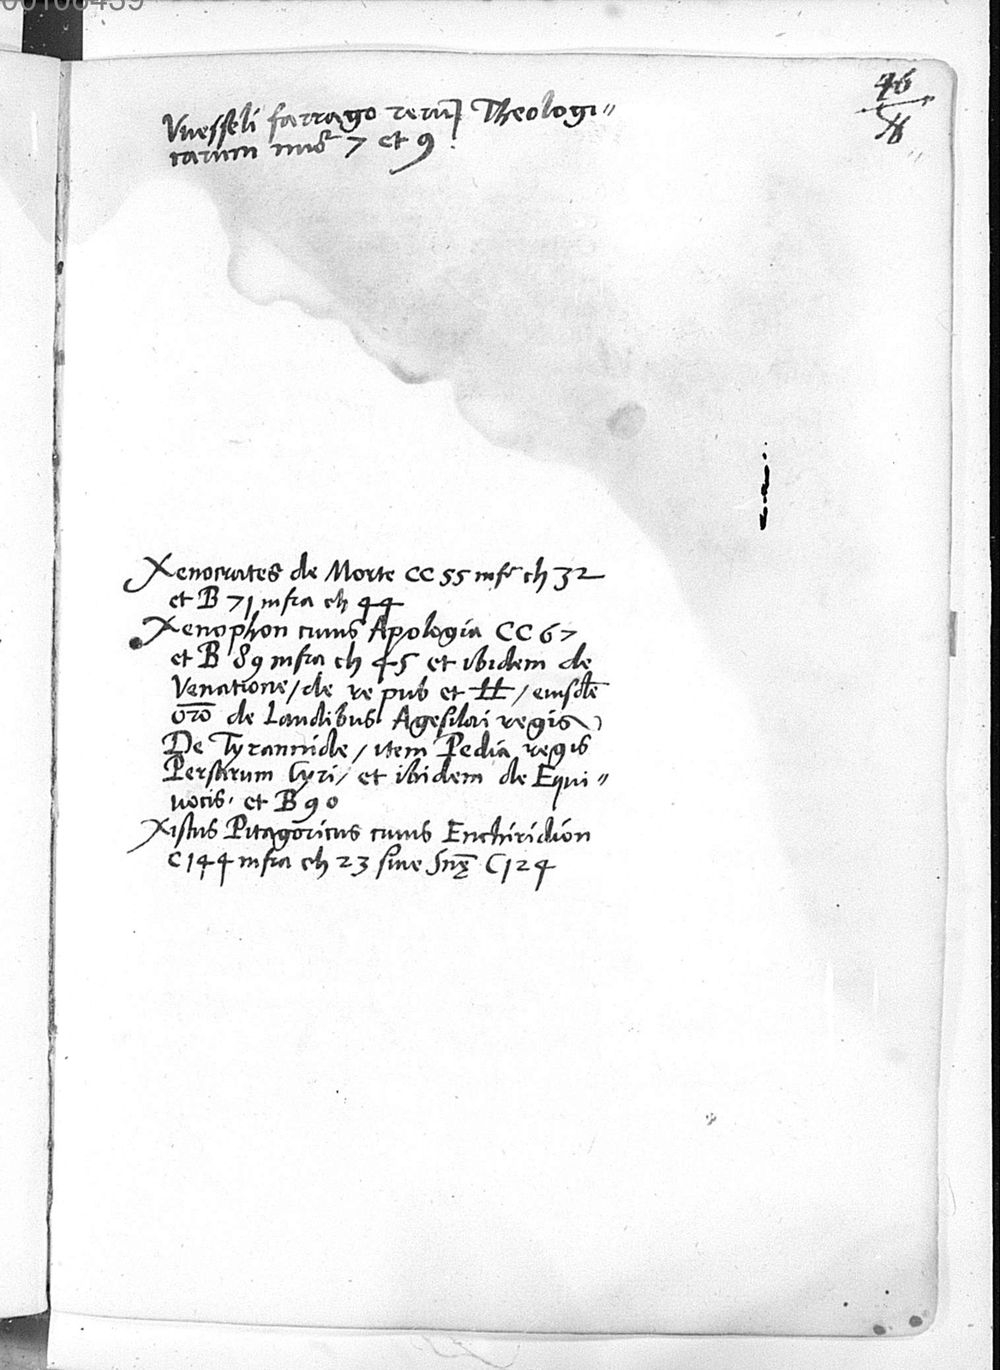 00106439
46
Vuesseli farrago rerū Theologi〃
carum nūo 7 et 9.
Xenocrates de Morte CC 55 infr ch 32
et B 71 infra ch 44
Xenophon cuius Apologia CC 67
et B 89 infra ch 45 et ibidem de
Venatione / de re pub et LL / eiusdē
orō de Laudibus Agesilai regis
De Tyrannide / item Pedia regis
Persarum Cyri / et ibidem de Equi〃
vocis. et B 90
Xistus Pitagoricus cuius Enchiridion
C 144 infra ch 23 sive C 124